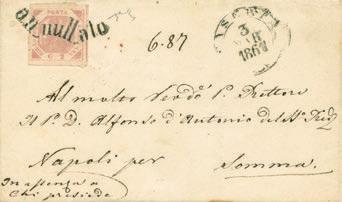 annullato
POSTA
G 2
6.87
CASERTA
3
1861
Al molto Revdo P. Rettore
Il P. D. Alfonso d'Antonio del
Napoli per Somma.
In assenza a
chi presiede